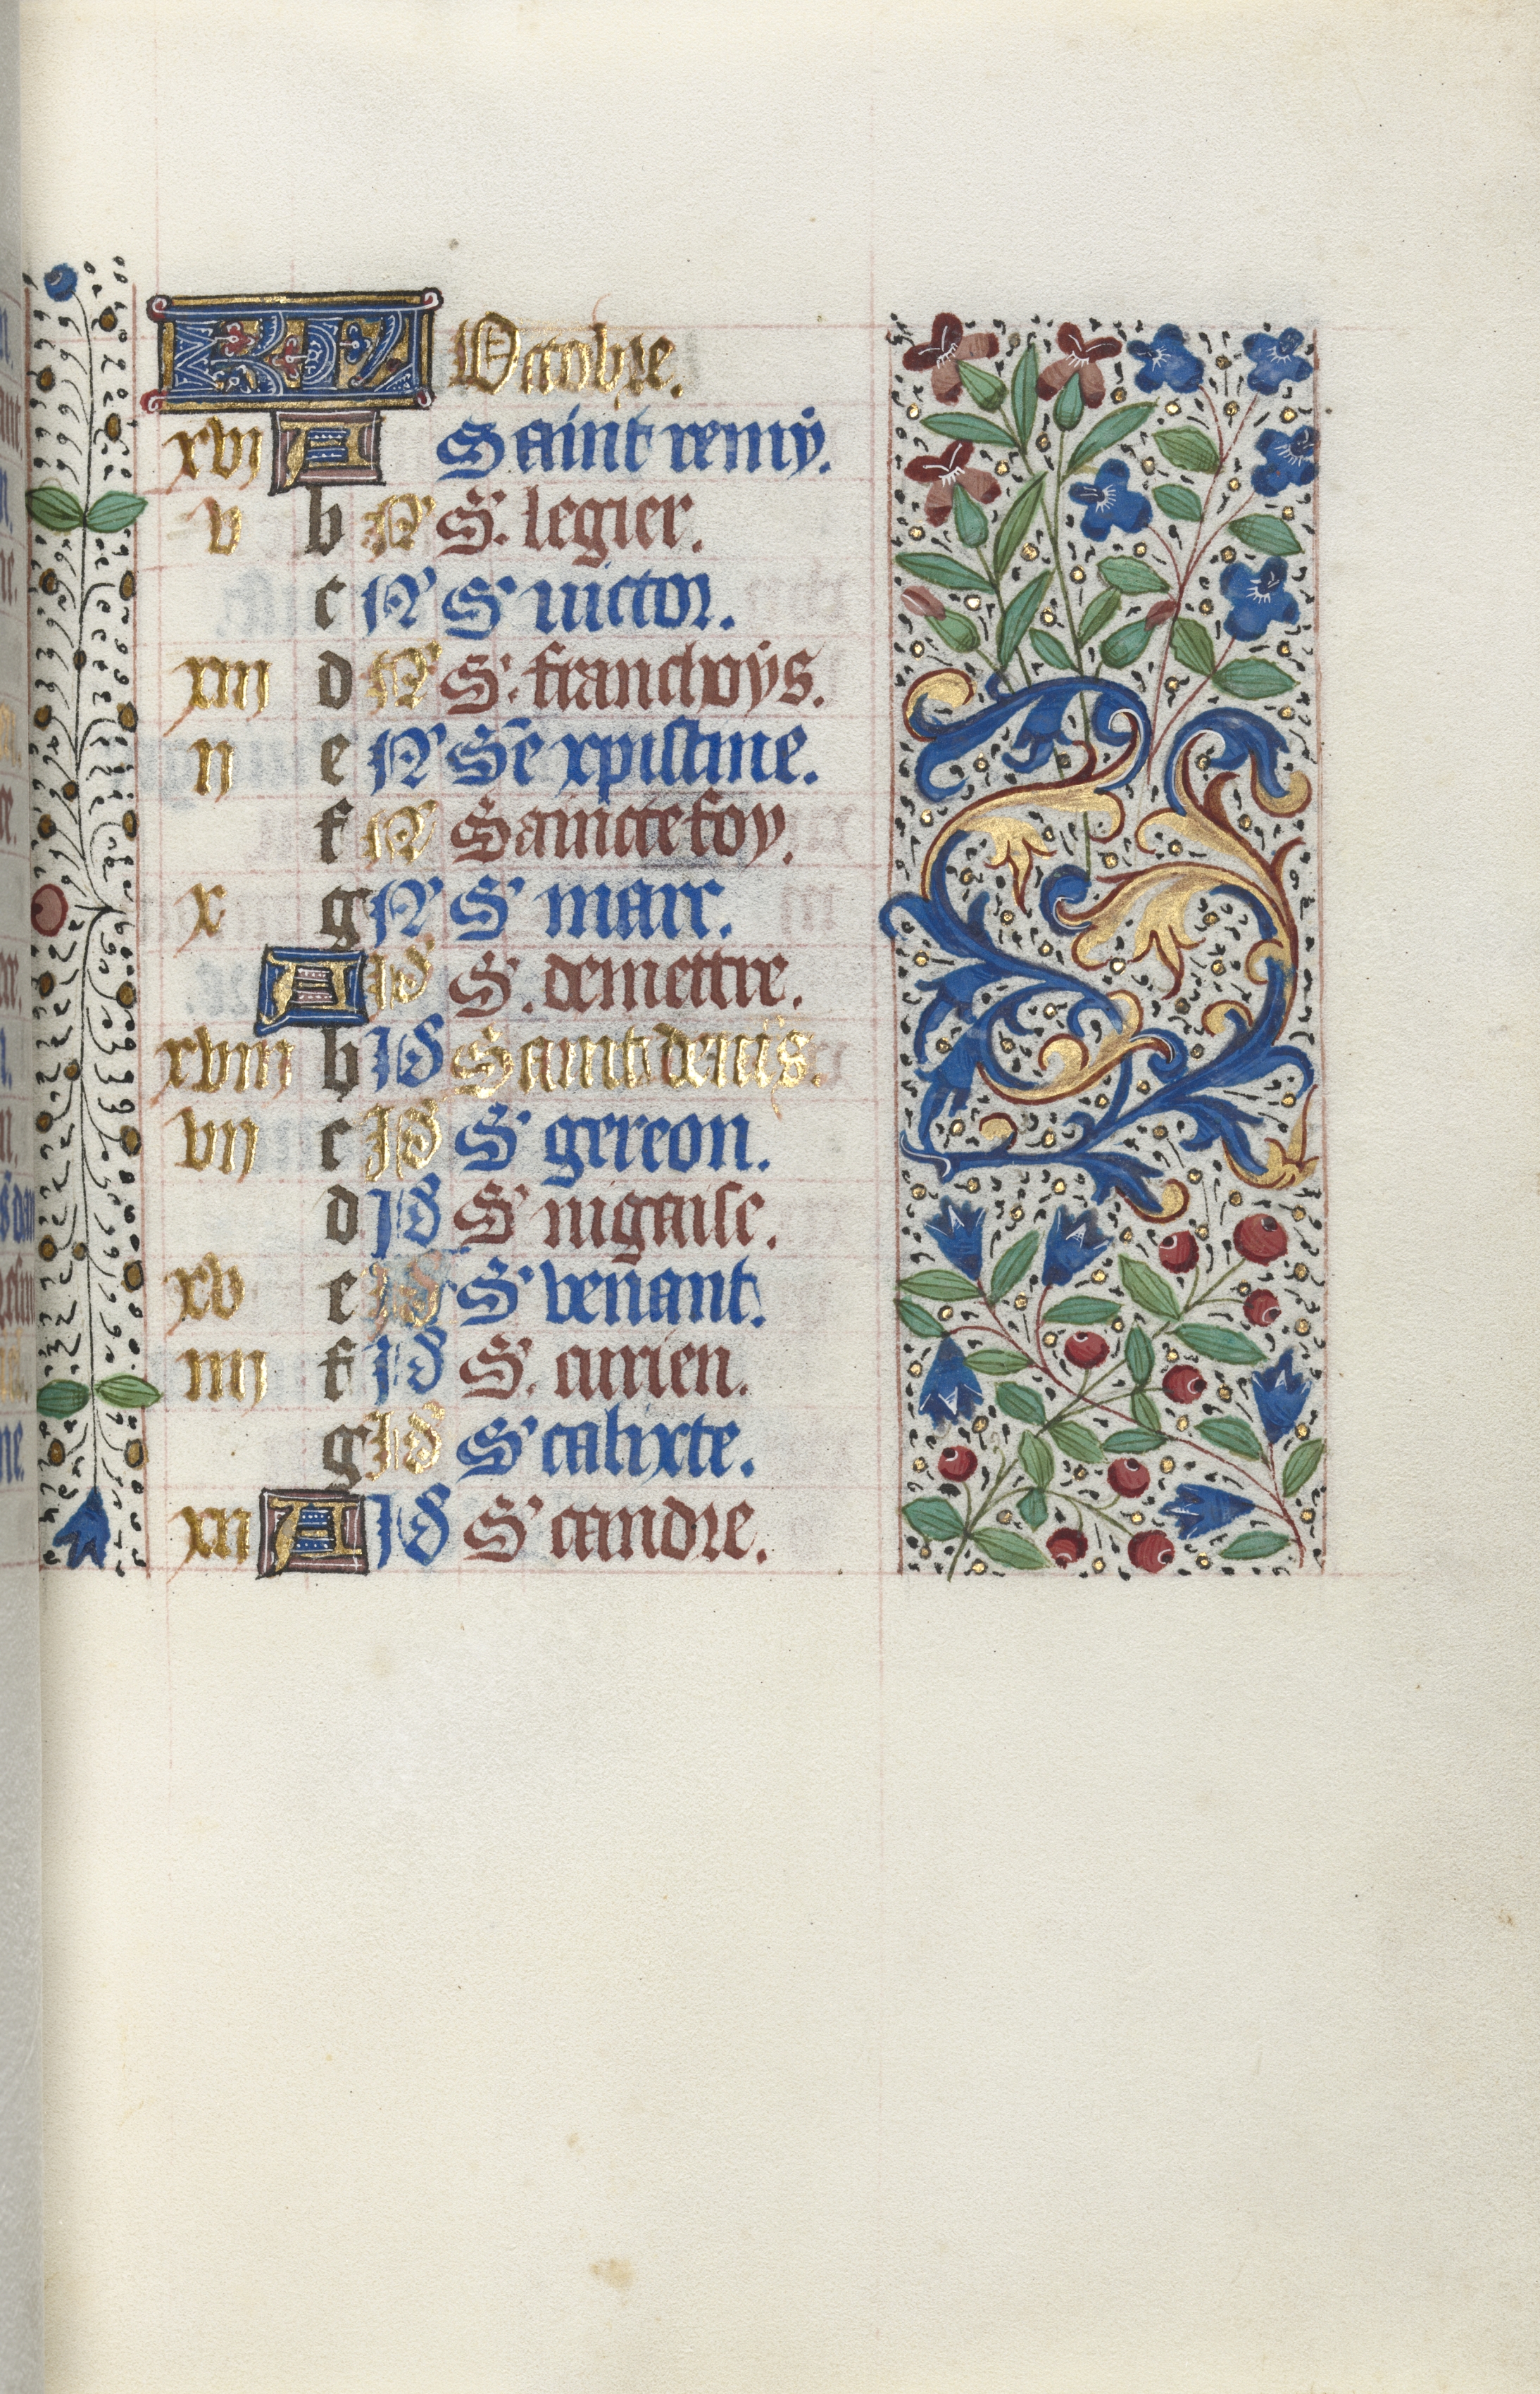 KL Octobre.
xvj A Saint remy.
v b N S. legier.
c N S' victor.
xiij d N S'. franchoys.
ij e N Se xpistine.
f N Saincte foy.
x g N S' marc.
A Id S'. demettre.
xviij b Id Saint denis.
vij c Id S' gereon.
d Id S' nigaise.
xv e Id S' venant.
iiij f Id S'. aurien.
g Id S' calixte.
xij A Id S' candre.